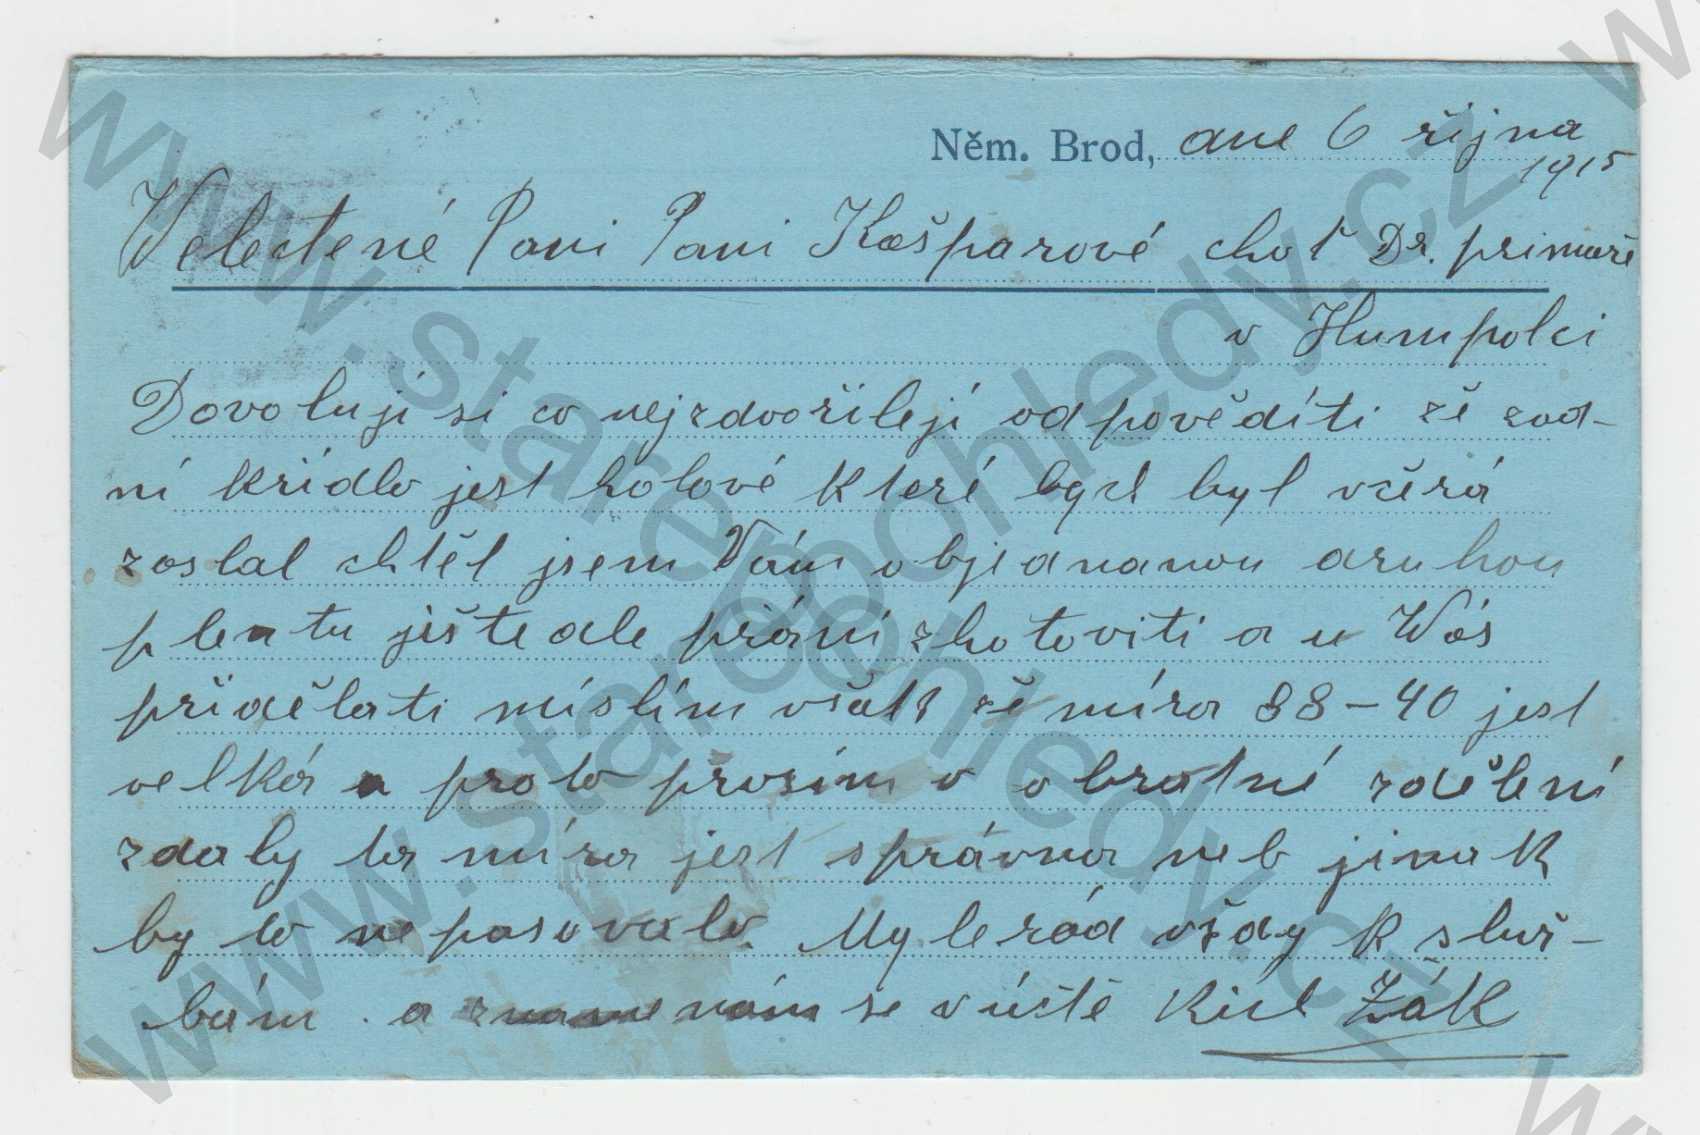 Něm. Brod, dne 6 října
1915
Velectěné Paní Paní Kašparové choť Dr. primaře
v Humpolci
Dovoluji si co nejzdvořileji odpověděti že zad-
ní křídlo jest hotové které bych byl včera
zaslal chtěl jsem Vám objednanou druhou
plentu ještě dle přání zhotoviti a u Vás
přidělati myslím však že míra 38-40 jest
velká a proto prosím o obratné zdělení
zdaly ta míra jest správna neb jinak
by to nepasovalo. My le rád vždy k služ-
bám a se v úctě Žák
www.starepohledy.cz
www.starepohledy.cz